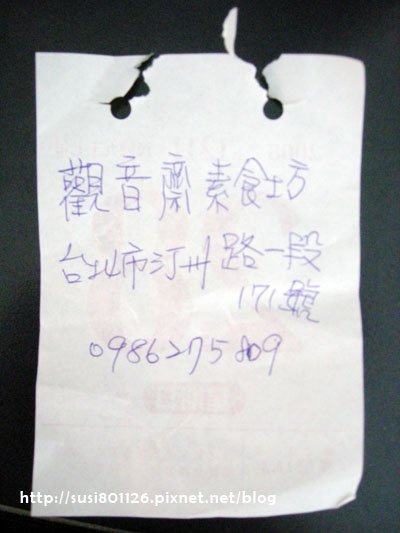 觀音齋素食坊
台北市汀州路一段
171號
0986275809
http://susi801126.pixnet.net/blog